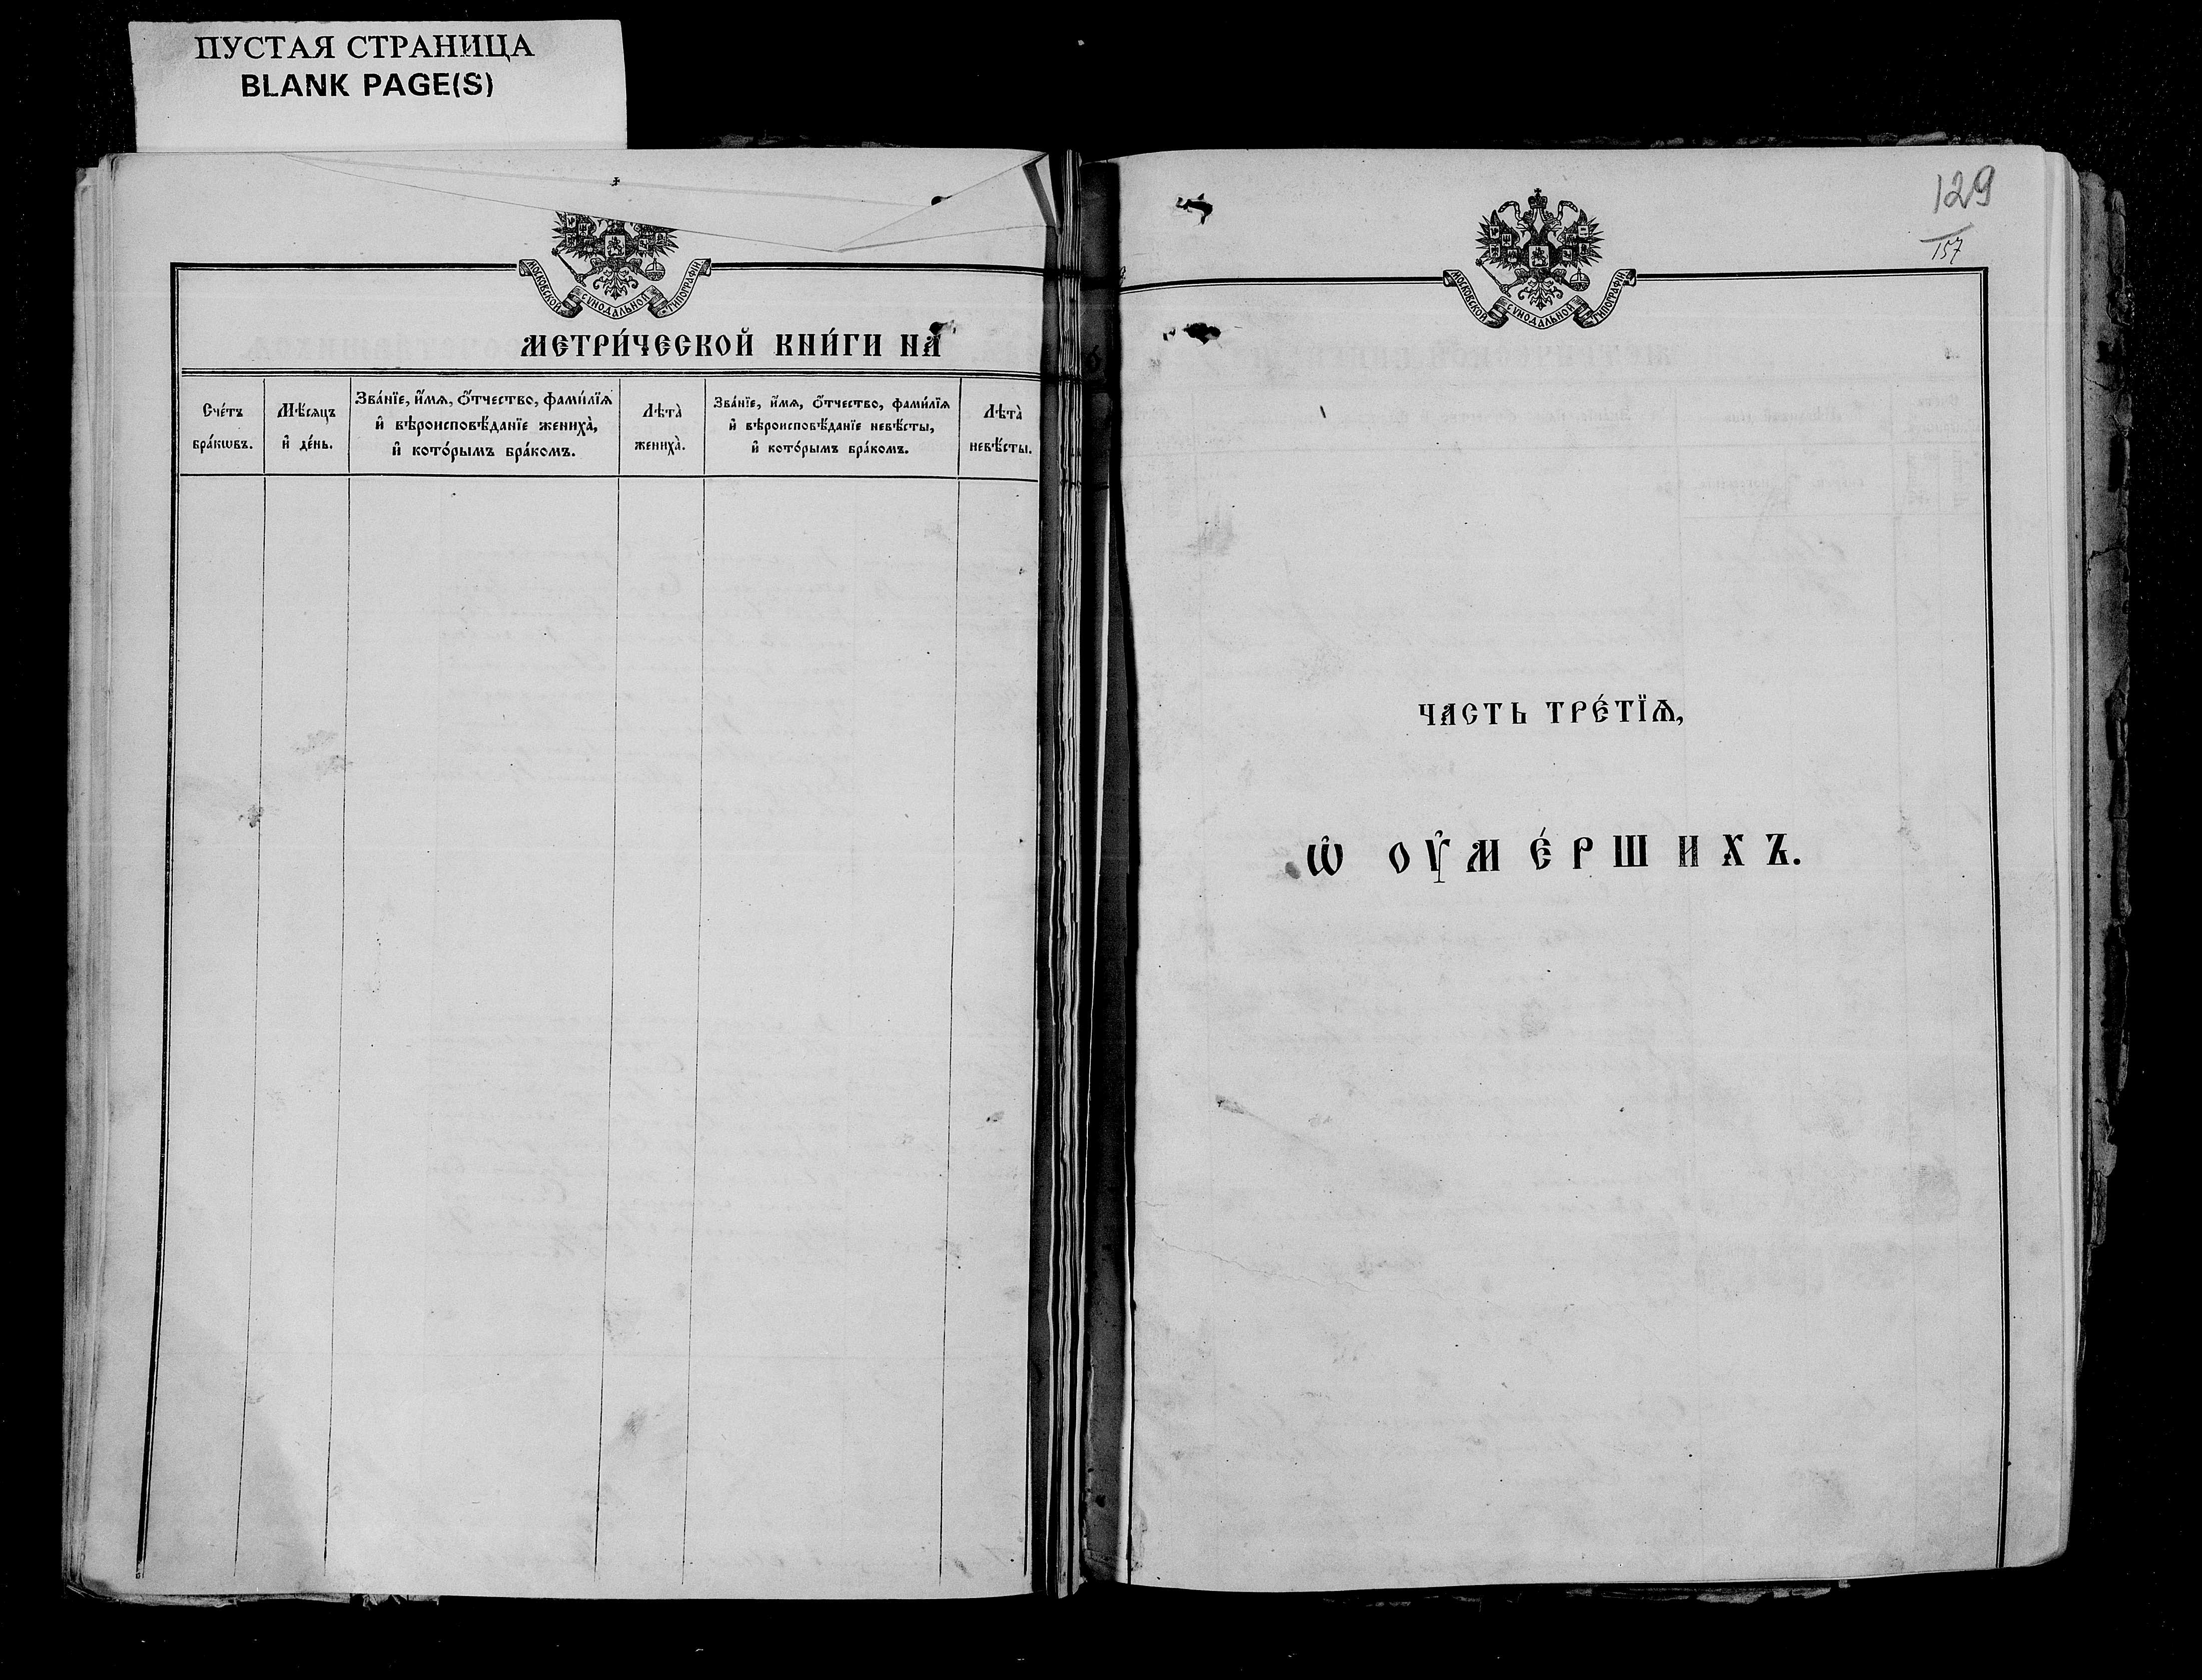 ПУСТАЯ СТРАНИЦА
BLANK PAGE(S)
МОСКОВСКОЙ СѴНОДАЛЬНОЙ ТИПОГРАФІИ
МЕТРИ́ЧЕСКОЙ КНИ́ГИ НА̀
Сче́тъ бра́кѡвъ.
Мѣ́сѧцъ и҆ де́нь.
Зва́нїе, и҆́мѧ, ѻ҆́тчество, фами́лїѧ и҆ вѣроисповѣ́данїе жениха̀, и҆ кото́рымъ бра́комъ.
Лѣта̀ жениха̀.
Зва́нїе, и҆́мѧ, ѻ҆́тчество, фами́лїѧ и҆ вѣроисповѣ́данїе невѣ́сты, и҆ кото́рымъ бра́комъ.
Лѣта̀ невѣ́сты.
129
157
МОСКОВСКОЙ СѴНОДАЛЬНОЙ ТИПОГРАФІИ
ЧАСТЬ ТРЕ́ТЇѦ,
Ѡ҆ ОУ҆МЕ́РШИХЪ.